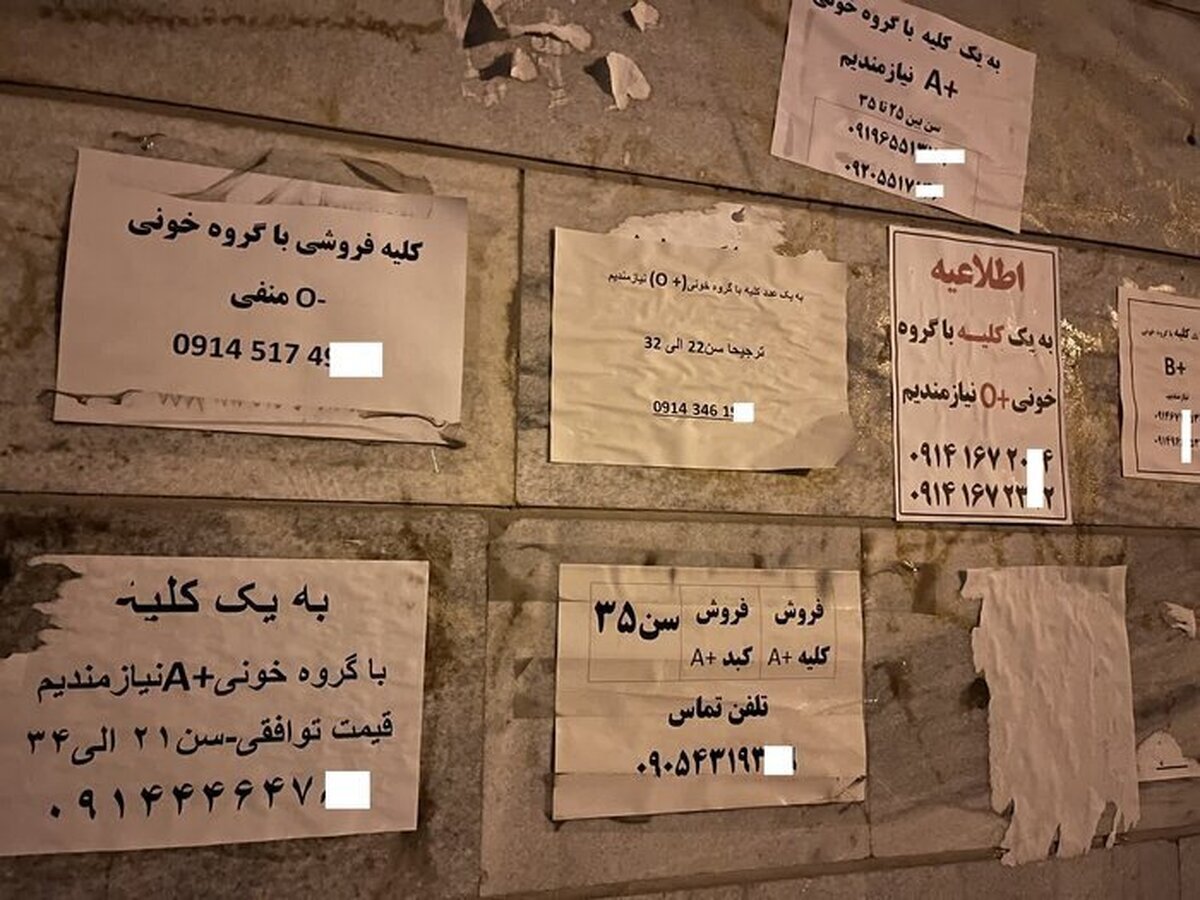 به یک کلیه با گروه خونی
A+ نیازمندیم
سن بین ۲۵ تا ۳۵
۰۹۱۹۶۵۵۱۳
۰۹۲۰۵۵۱۷
کلیه فروشی با گروه خونی
O- منفی
0914 517 49
به یک عدد کلیه با گروه خونی(+O) نیازمندیم
ترجیحا سن22 الی 32
0914 346 19
اطلاعیه
به یک کلیـه با گروه
خونی+O نیازمندیم
۰۹۱۴ ۱۶۷ ۲۰ ۴
۰۹۱۴ ۱۶۷ ۲۳ ۲
کلیه با گروه خونی
B+
نیازمندیم
۰۹۱۴۶۷ ۱۳
۰۹۱۴۹۶ ۵۳
به یک کلیه
با گروه خونی+Aنیازمندیم
قیمت توافقی-سن۲۱ الی۳۴
۰۹۱۴۴۴۶۴۷
فروش کلیه +A
فروش کبد +A
سن۳۵
تلفن تماس
۰۹۰۵۴۳۱۹۳